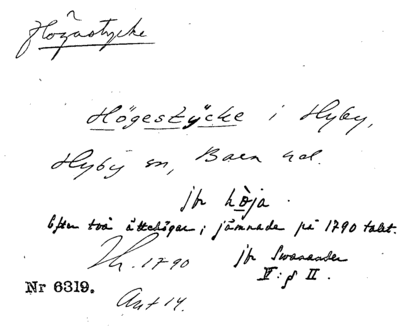 Högastycke
Högestycke i Hyby,
Hyby sn, Bara hd.
jfr höja.
Efter två ättehögar, jämnade på 1790 talet.
Th. 1790 jfr Swanander
IV: § II.
Nr 6319.
Ant 14.